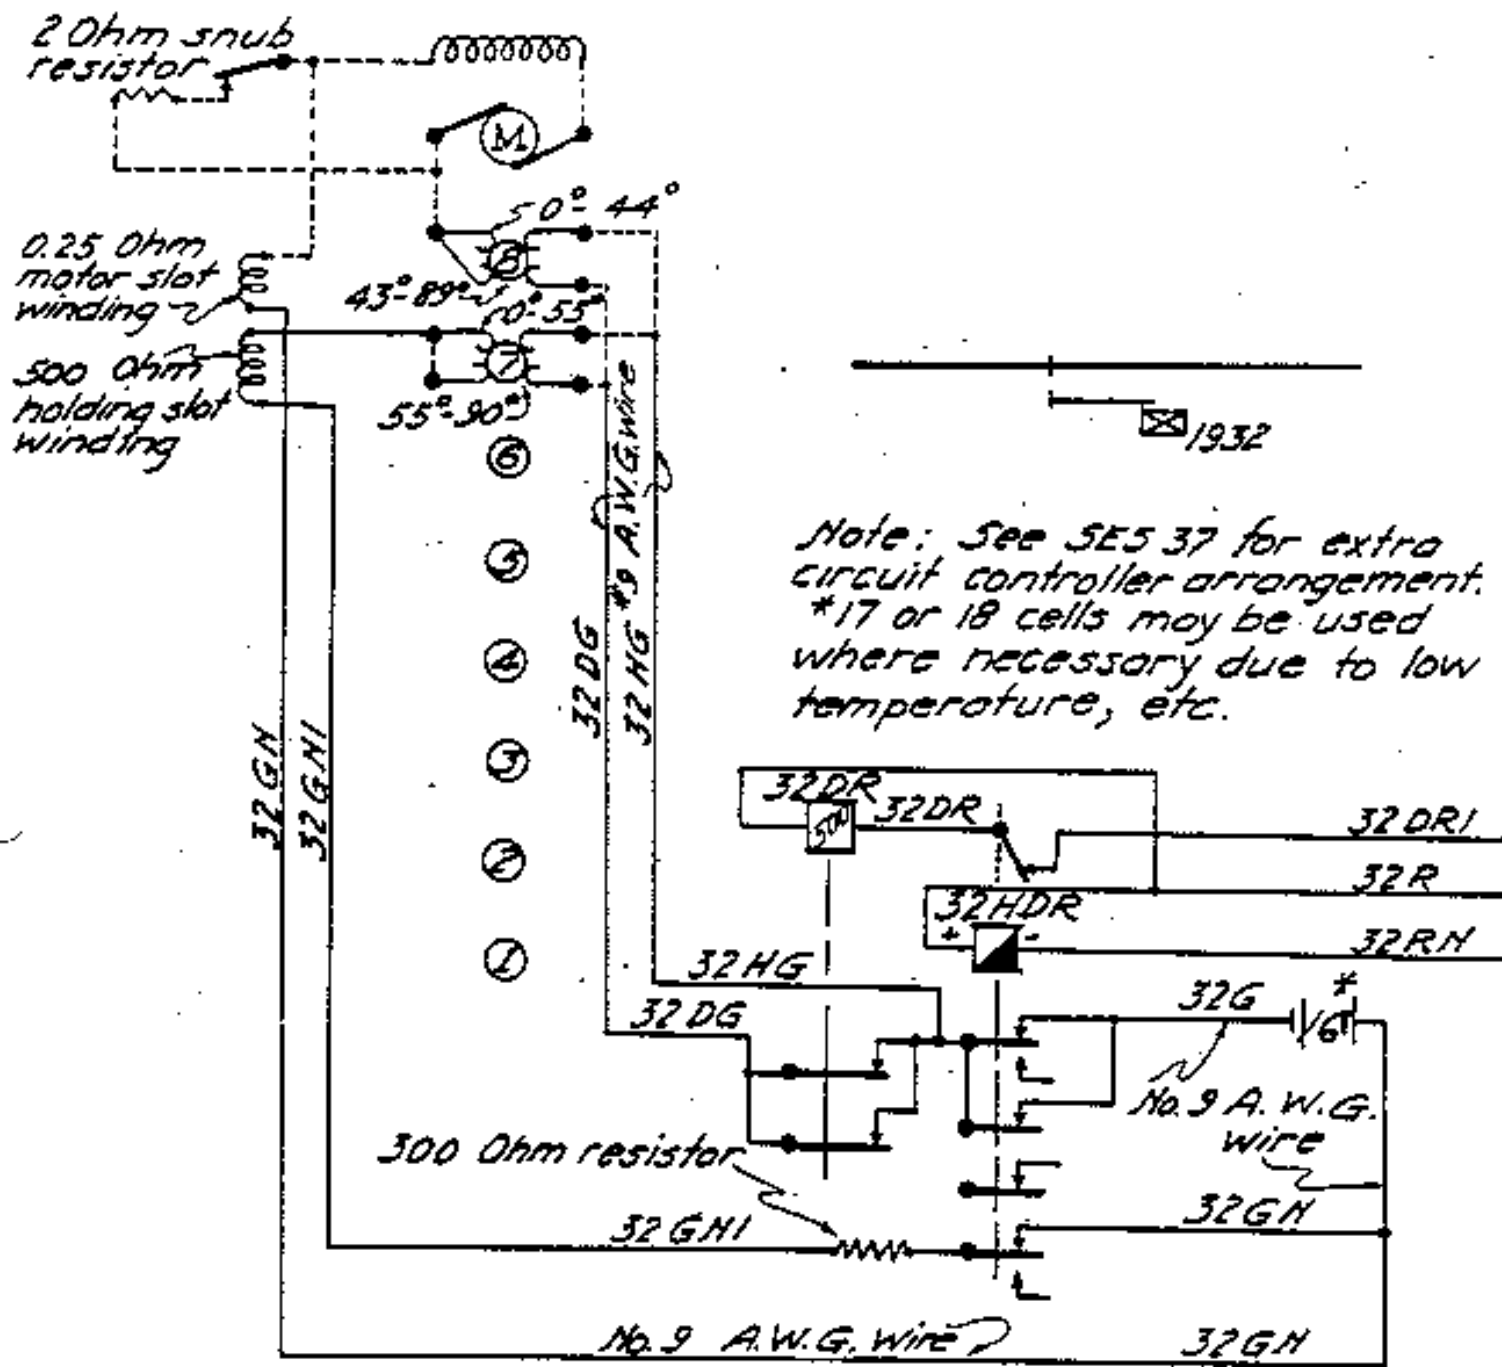 2 Ohm snub
resistor
M
0°- 44°
8
0.25 Ohm
motor slot
winding
43°-89°
0°-55°
7
500 Ohm
holding slot
winding
55°-90°
6
1932
5
4
3
2
1
32 DG
32 HG #9 A.W.G. wire
32 GN
32 GN1
Note: See SES 37 for extra
circuit controller arrangement.
*17 or 18 cells may be used
where necessary due to low
temperature, etc.
32DR
500
32DR
32 DR1
32R
32HDR
+ -
32RN
32 HG
32G
*
16
32 DG
No. 9 A. W. G.
wire
300 Ohm resistor
32 GN1
32GN
No. 9 A.W.G. wire
32GN